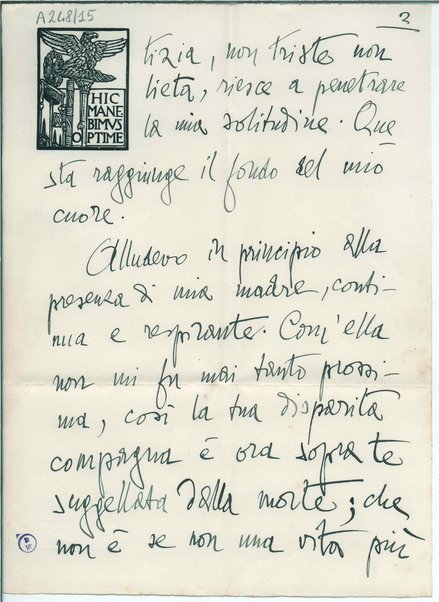 A248/15
2
HIC
MANE
BIMVS
OPTIME
tizia, non triste non
lieta, riesce a penetrare
la mia solitudine. Que
sta raggiunge il fondo del mio
cuore.
Alludevo in principio alla
presenza di mia madre, conti-
nua e respirante. Com'ella
non mi fu mai tanto prossi-
ma, così la tua disparita
compagna è ora sopra te
suggellata dalla morte; che
non è se non una vita più